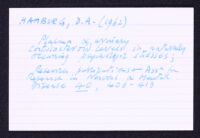 HAMBURG, D.A. (1962)
Plasma & urinary
corticosteroid levels in naturally
occurring psychologic stresses;
Research publications Assn for
Research in Nervous & Mental
Disease 40, 406-413